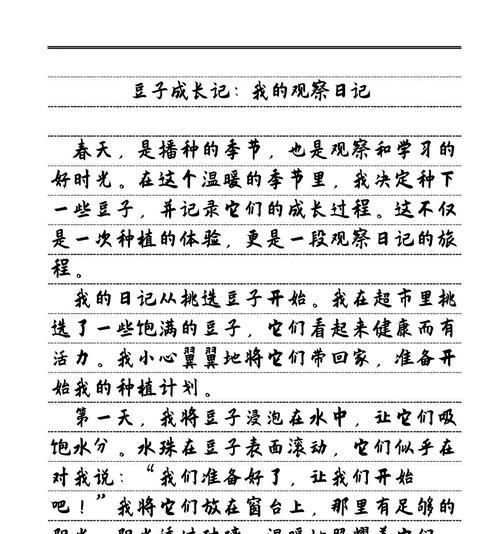 豆子成长记：我的观察日记
春天，是播种的季节，也是观察和学习的
好时光。在这个温暖的季节里，我决定种下
一些豆子，并记录它们的成长过程。这不仅
是一次种植的体验，更是一段观察日记的旅
程。
我的日记从挑选豆子开始。我在超市里挑
选了一些饱满的豆子，它们看起来健康而有
活力。我小心翼翼地将它们带回家，准备开
始我的种植计划。
第一天，我将豆子浸泡在水中，让它们吸
饱水分。水珠在豆子表面滚动，它们似乎在
对我说：“我们准备好了，让我们开始
吧！”我将它们放在窗台上，那里有足够的
阳光。阳光透过玻璃，温暖地照耀着它们